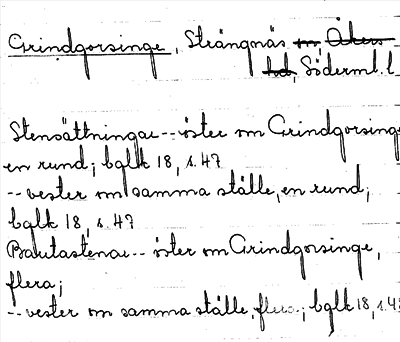 Grindgorsinge, Strängnäs m Åkers
hd, Söderml. l
Stensättningar -- öster om Grindgorsinge
en rund; bglk 18, s. 47
-- vester om samma ställe, en rund;
bglk 18, s. 47
Bautastenar -- öster om Grindgorsinge,
flera;
-- vester om samma ställe, flera; bglk 18, s. 4